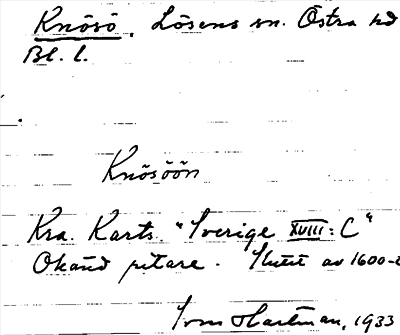 Knösö, Lösens sn. Östra hd
Bl. l.
Knösöön
Kra. Karts. "Sverige XVIII: C"
Okänd ritare. Slutet av 1600-t
Tom Hartman, 1933